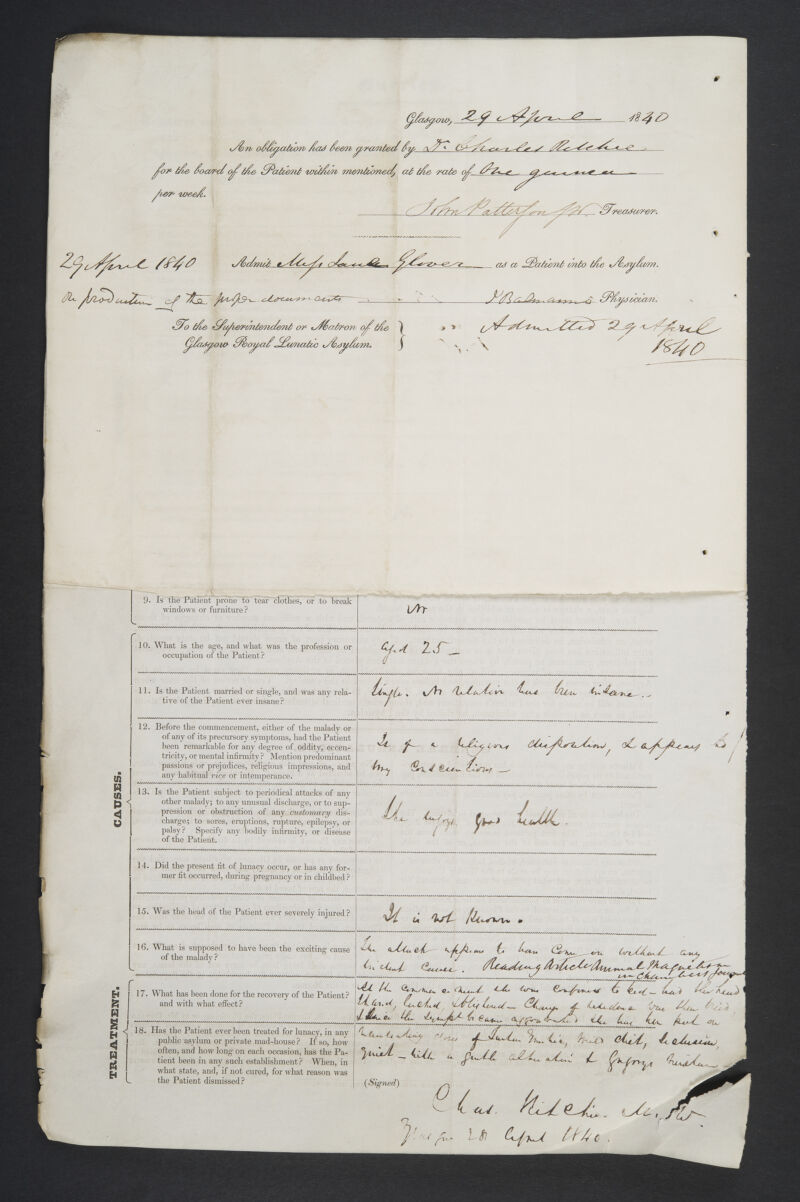 Glasgow, 29 April 1840
An obligation has been granted by Dr. Charles Ritchie
for the board of the Patient within mentioned, at the rate of One guinea
per week.
John Patterson Treasurer.
29 April 1840 Admit Miss Jane Glover as a Patient into the Asylum.
on production of the proper documents Balmanno Physician.
To the Superintendent or Matron of the
Glasgow Royal Lunatic Asylum.
Admitted 29 April
1840
9. Is the Patient prone to tear clothes, or to break
windows or furniture?
No
10. What is the age, and what was the profession or
occupation of the Patient?
Aged 25 –
11. Is the Patient married or single, and was any rela-
tive of the Patient ever insane?
Single. No relative has been insane. –
CAUSES.
12. Before the commencement, either of the malady or
of any of its precursory symptoms, had the Patient
been remarkable for any degree of oddity, eccen-
tricity, or mental infirmity? Mention predominant
passions or prejudices, religious impressions, and
any habitual vice or intemperance.
Is of a religious disposition, & appears to be
very conscientious –
13. Is the Patient subject to periodical attacks of any
other malady; to any unusual discharge, or to sup-
pression or obstruction of any customary dis-
charge; to sores, eruptions, rupture, epilepsy, or
palsy? Specify any bodily infirmity, or disease
of the Patient.
She enjoys good health.
14. Did the present fit of lunacy occur, or has any for-
mer fit occurred, during pregnancy or in childbed?
15. Was the head of the Patient ever severely injured?
It is not known.
16. What is supposed to have been the exciting cause
of the malady?
The attack appears to have come on without any
evident cause. Reading Article Animal Magnetism
in Chambers Journal
TREATMENT.
17. What has been done for the recovery of the Patient?
and with what effect?
At the commencement she was confined to bed – had her head
shaved, leeched, & blistered – Change of residence was then tried,
& since the symptoms became aggravated she has been kept on
18. Has the Patient ever been treated for lunacy, in any
public asylum or private mad-house? If so, how
often, and how long on each occasion, has the Pa-
tient been in any such establishment? When, in
what state, and, if not cured, for what reason was
the Patient dismissed?
nauseating doses of Tartar Emetic, mild diet, seclusion,
quiet – with a gentle alterative & Gregorys
(Signed)
Chas. Ritchie M.D.
Glasgow 28 April 1840.